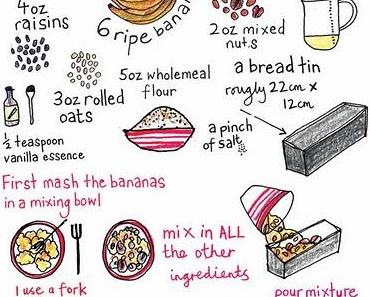 4oz
raisins
6 ripe bananas
2oz mixed
nuts
3oz rolled
oats
5oz wholemeal
flour
a bread tin
rougly 22cm x
12cm
½ teaspoon
vanilla essence
a pinch
of salt
First mash the bananas
in a mixing bowl
I use a fork
mix in ALL
the other
ingredients
pour mixture